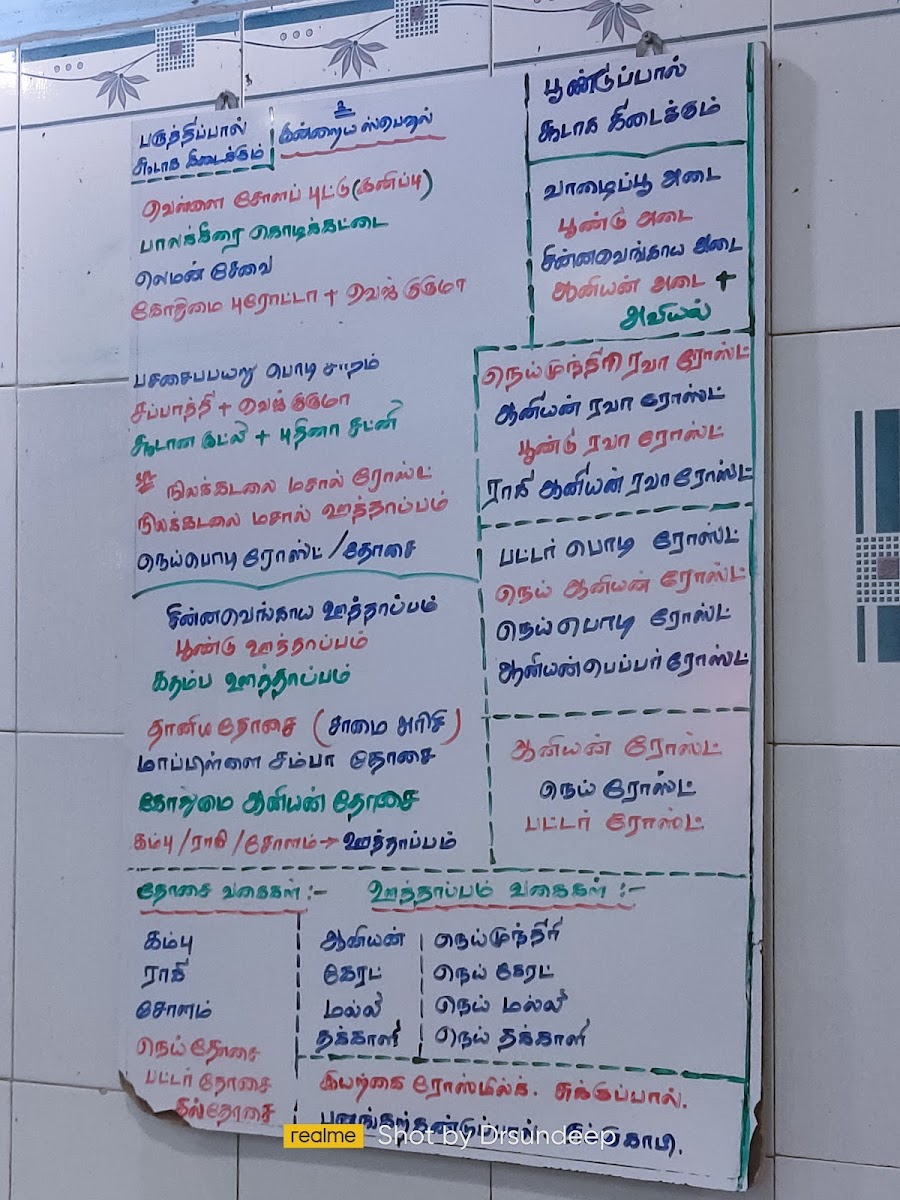 பருத்திப்பால்
சூடாக கிடைக்கும்
உ
இன்றைய ஸ்பெஷல்
வெள்ளை சோளப் புட்டு (இனிப்பு)
பாலக்கீரை கொடிக்கட்டை
லெமன் சேவை
கோதுமை புரோட்டா + வெஜ் குருமா
பச்சைப்பயறு பொடி சாதம்
சப்பாத்தி + வெஜ் குருமா
சூடான இட்லி + புதினா சட்னி
நிலக்கடலை மசால் ரோஸ்ட்
நிலக்கடலை மசால் ஊத்தாப்பம்
நெய்பொடி ரோஸ்ட் / தோசை
சின்னவெங்காய ஊத்தாப்பம்
பூண்டு ஊத்தாப்பம்
கதம்ப ஊத்தாப்பம்
தானிய தோசை (சாமை அரிசி)
மாப்பிள்ளை சம்பா தோசை
கோதுமை ஆனியன் தோசை
கம்பு / ராகி / சோளம் → ஊத்தாப்பம்
பூண்டுப்பால்
சூடாக கிடைக்கும்
வாழைப்பூ அடை
பூண்டு அடை
சின்னவெங்காய அடை
ஆனியன் அடை +
அவியல்
நெய்முந்திரி ரவா ரோஸ்ட்
ஆனியன் ரவா ரோஸ்ட்
பூண்டு ரவா ரோஸ்ட்
ராகி ஆனியன் ரவா ரோஸ்ட்
பட்டர் பொடி ரோஸ்ட்
நெய் ஆனியன் ரோஸ்ட்
நெய் பொடி ரோஸ்ட்
ஆனியன் பெப்பர் ரோஸ்ட்
ஆனியன் ரோஸ்ட்
நெய் ரோஸ்ட்
பட்டர் ரோஸ்ட்
தோசை வகைகள் :-
கம்பு
ராகி
சோளம்
நெய் தோசை
பட்டர் தோசை
தோசை
ஊத்தாப்பம் வகைகள் :-
ஆனியன்
கேரட்
மல்லி
தக்காளி
நெய்முந்திரி
நெய் கேரட்
நெய் மல்லி
நெய் தக்காளி
இயற்கை ரோஸ்மில்க். சுக்குப்பால்.
realme Shot by Drsundeep